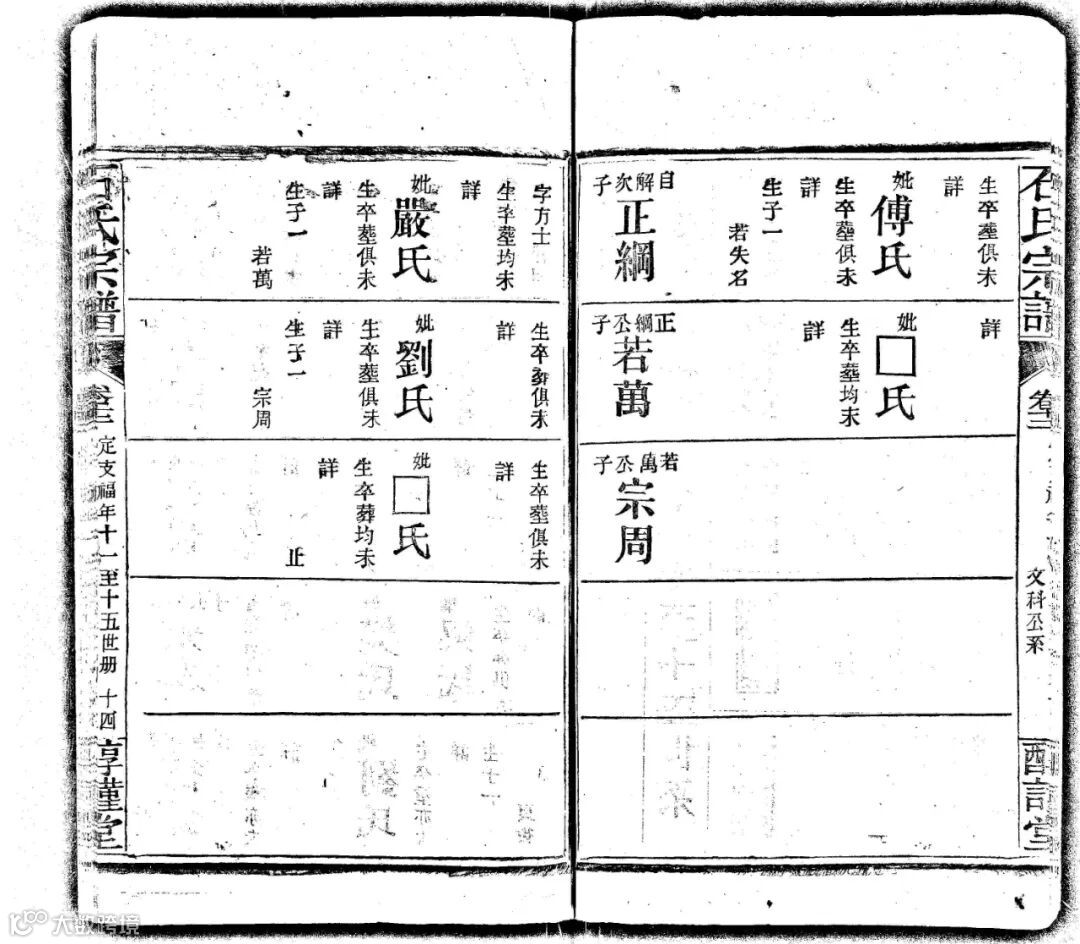 石氏宗譜
卷三
文科公系
生卒塟俱未
詳
妣傅氏
生卒塟俱未
詳
生子一
若失名
自解次子
正綱
詳
妣□氏
生卒塟均未
詳
正綱公子
若萬
若萬公子
宗周
字方士
生卒塟均未
詳
妣嚴氏
生卒塟俱未
詳
生子一
若萬
生卒塟俱未
詳
妣劉氏
生卒塟俱未
詳
生子一
宗周
生卒塟俱未
詳
妣□氏
生卒葬均未
詳
止
石氏宗譜
卷三
定支福年十一至十五世册 十四
惇堂
大数跨境